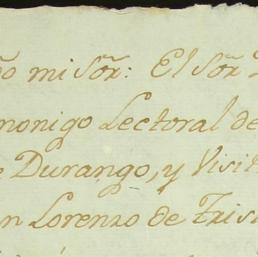 mi Sõr: El Sõr
nonigo Lectoral de
Durango, y Visit
n Lorenzo de Tris